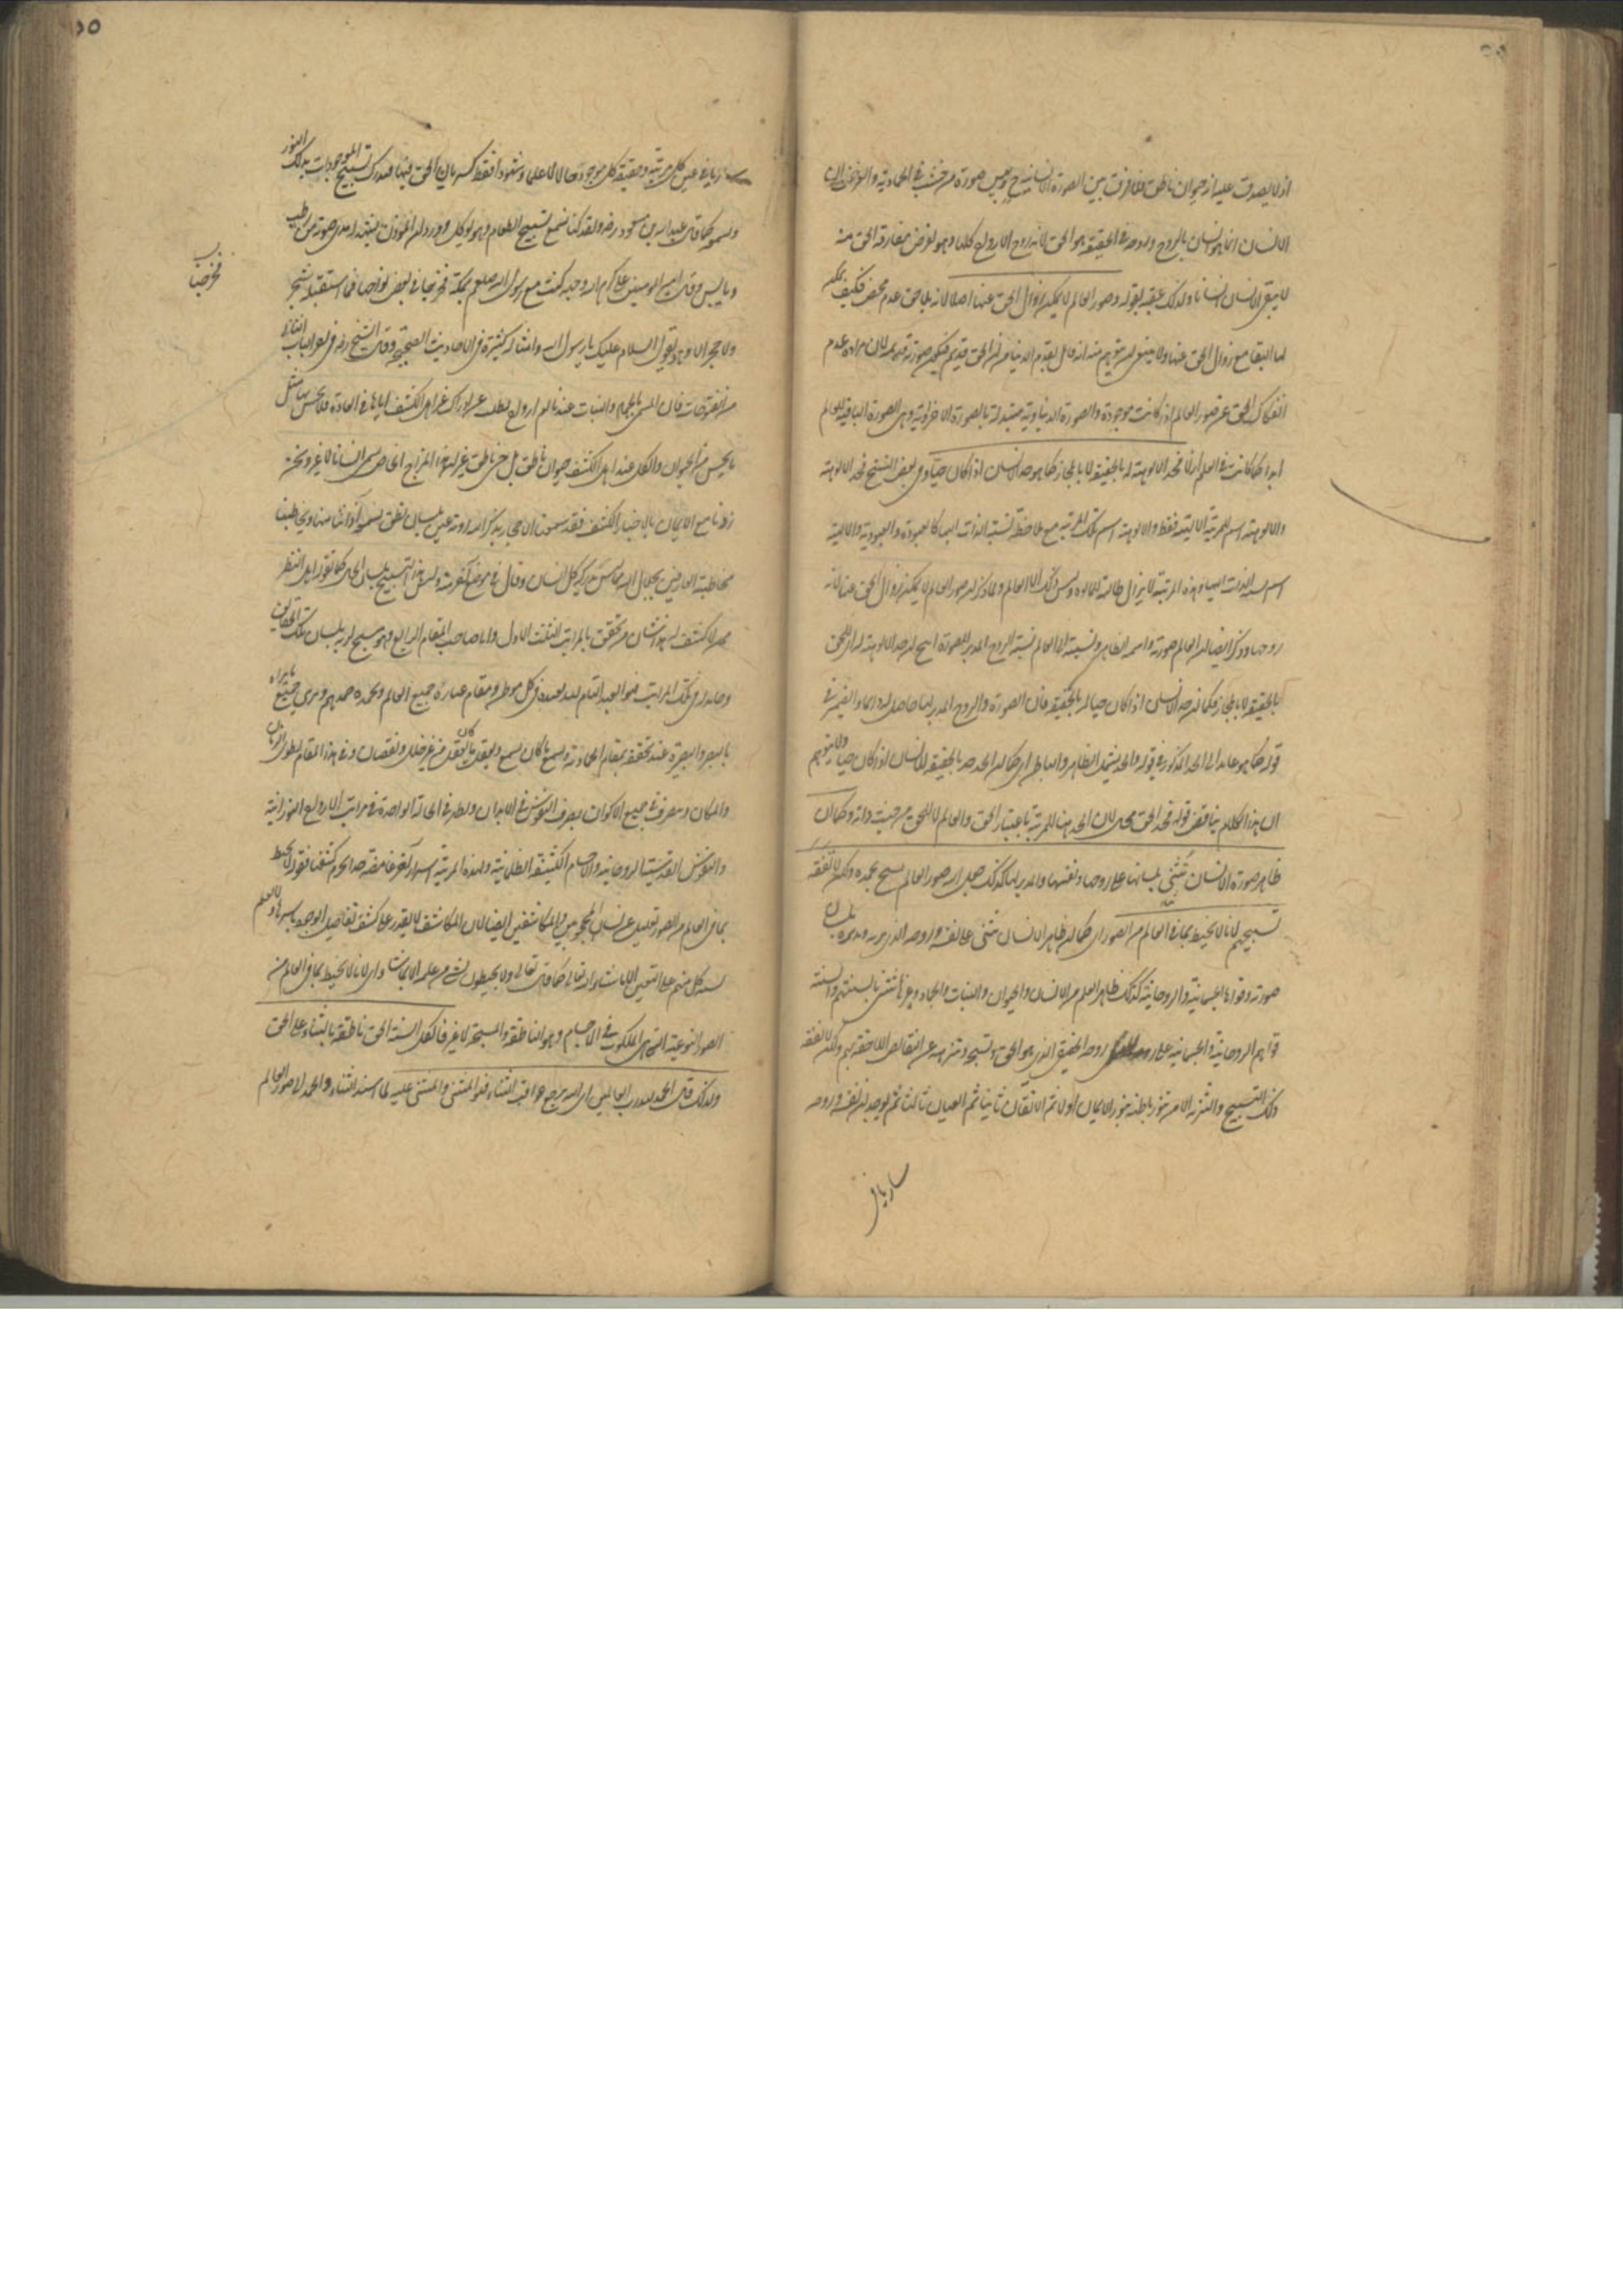 اذ لا يصدق عليه انه حيوان ناطق فلا فرق بين الصورة الانسانية ح وبين صورة من خشب في الجمادية والغرض ان
الانسان انما هو انسان بالروح وروحه في الحقيقة هو الحق لانه روح الارواح كلها وهو لو فرض مفارقة الحق منه
لا يبقى الانسان انسانا ولذلك عقبه بقوله وصور العالم لا يمكن زوال الحق عنها اصلا لانه بلا حق عدم محض فكيف يمكن
لها البقا مع زوال الحق عنها ولا ينبغي ان يتوهم منه انه قائل بقدم الدنيا من ان الحق قديم فيكون صورته قديمة لان مراده عدم
انفكاك الحق عن صور العالم اذا كانت موجودة والصورة الدنياوية متبدلة بالصورة الاخراوية وهي الصورة الباقية للعالم
ابدا كما كانت في العلم ازلا فحد الالوهية له بالحقيقة لا بالمجاز كما هو حد الانسان اذا كان حيا وفي بعض النسخ فحد الالوهية
والالوهية اسم للمرتبة الالهية فقط والالوهية اسم تلك المرتبة مع ملاحظة نسبة الذات اليها كالعبودة والعبودية والالهية
اسم نسبة الذات اليها وهذه المرتبة لا يزال طالبة للمألوه وليس ذلك الا العالم ولما ذكر ان صور العالم لا يمكن زوال الحق عنها لانه
روحها وذكر ايضا ان العالم صورته واسمه الظاهر ونسبته الى العالم نسبة الروح المدبر للصورة انتج ان حد الالوهية له اي للحق
بالحقيقة لا بالمجاز فكما ان حد الانسان اذا كان حيا له بالحقيقة فان الصورة والروح المدبر لها حاصل له دائما والضمير في
قوله كما هو عائد الى الحد المذكور في قوله والحد يشمل الظاهر والباطن اي كما ان الحد حد بالحقيقة للانسان اذا كان حيا ولا يتوهم
ان هذا الكلام يناقض قوله فحد الحق محال لان الحد هنا للمرتبة باعتبار الحق والعالم لا للحق من حيث ذاته وكما ان
ظاهر صورة الانسان تثني بلسانها على روحها ونفسها والمدبر لها كذلك جعل الله صور العالم يسبح بحمده ولكن لا نفقه
تسبيحهم لانا لا نحيط بما في العالم من الصور اي كما ان ظاهر الانسان يثني على نفسه وروحه الذي يربه ويدبره بلسان
صورته وقواها الجسمانية والروحانية كذلك ظاهر العلم من الانسان والحيوان والنبات والجماد وغيرها يثني بالسنتهم والسنة
قواهم الروحانية والجسمانية على روحه الحقيقي الذي هو الحق وتسبحه وتنزهه عن النقائص اللاحقة بهم ولكن لا نفقه
ذلك التسبيح والتنزيه الا من تنور باطنه بنور الايمان اولا ثم الايقان ثانيا ثم العيان ثالثا ثم يوجدان نفسه وروحه
ساريا في
ساريا في عين كل مرتبة وحقيقة كل موجود حالا لا علما وشهودا فقط كسريان الحق فيها فيدرك تسبيح الموجودات بذلك النور
ويسمعه كما قال عبد الله بن مسعود رضه ولقد كنا نسمع تسبيح الطعام وهو يؤكل وورد ان المؤذن يشهد له مدى صوته من رطب
ويابس وقال امير المؤمنين على كرم الله وجهه كنت مع رسول الله صلعم بمكة فخرجنا في بعض نواحيها فما استقبله شجر
فخرجنا
ولا حجر الا وهو يقول السلام عليك يا رسول الله وامثاله كثيرة في الاحاديث الصحيحة وقال الشيخ رضه في اخر الباب الثاني
من الفتوحات فان المسمى بالجماد والنبات عندنا لهم ارواح بطنت عن ادراك غير اهل الكشف اياها في العادة فلا يحس بها مثل
ما يحس من الحيوان والكل عند اهل الكشف حيوان ناطق بل حي ناطق غير ان هذا المزاج الخاص يسمى انسانا لا غير ونحن
زدنا مع الايمان بالاخبار الكشف فقد سمعنا الاحجار يذكر الله رؤية عين بلسان نطق يسمعه آذاننا منها ويخاطبنا
مخاطبة العارفين بجلال الله مما ليس يدركه كل انسان وقال في موضع آخر منه وليس هذا التسبيح بلسان الحال كما يقوله اهل النظر
ممن لا كشف له هذا شأن من تحقق بالمراتب الثلث الاول واما صاحب المقام الرابع فهو مسبح لربه بلسان تلك الحقائق
وحامد له في تلك المراتب فهو العبد التام لله يعبده في كل موطن ومقام عبادة جميع العالم ويحمده حمدهم ويرى جميع ما يراه
بالبصر والبصيرة عند تحققه بمقام الجمادية ويسمع ما كان يسمع ويعقل ما كان يعقل من غير خلل ونقصان وفي هذا المقام يطوى الزمان
والمكان ويتصرف في جميع الاكوان تصرف النفوس في الابدان ويظهر في الحالة الواحدة في مراتب الارواح النورانية
والنفوس القدسية الروحانية والاجسام الكثيفة الظلمانية ولهذه المرتبة اسرار آخر غامضة حدا يحرم كشفها فقوله لا نحيط
بما في العالم من الصور تعليل عن لسان المحجوبين والمكاشفين ايضا لان المكاشف لا يقدر على كشف تفاصيل الوجود باسرها ولا العلم
لسنة كل منهم على التعيين الا ما شاء الله تعالى كما قال تعالى ولا يحيطون بشئ من علمه الا بما شاء اي لانا لا نحيط بما في العالم من
الصور النوعية التي هي الملكوت في الاجسام وهو الناطقة والمسبحة لا غير فالكل السنة الحق ناطقة بالثناء على الحق
ولذلك قال الحمد لله رب العالمين اي اليه يرجع عواقب الثناء فهو المثني والمثنى عليه لما اسند الثناء والحمد الى صور العالم